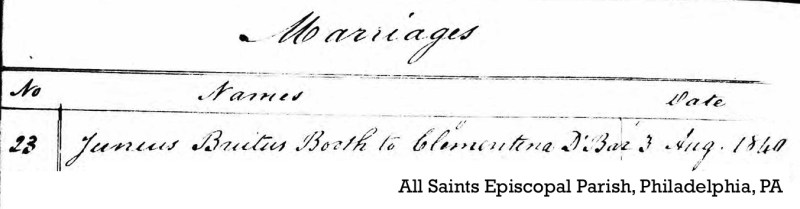 Marriages
No Names Date
23 Juneus Brutus Booth to Clementina D'Bar 3 Aug. 1840
All Saints Episcopal Parish, Philadelphia, PA